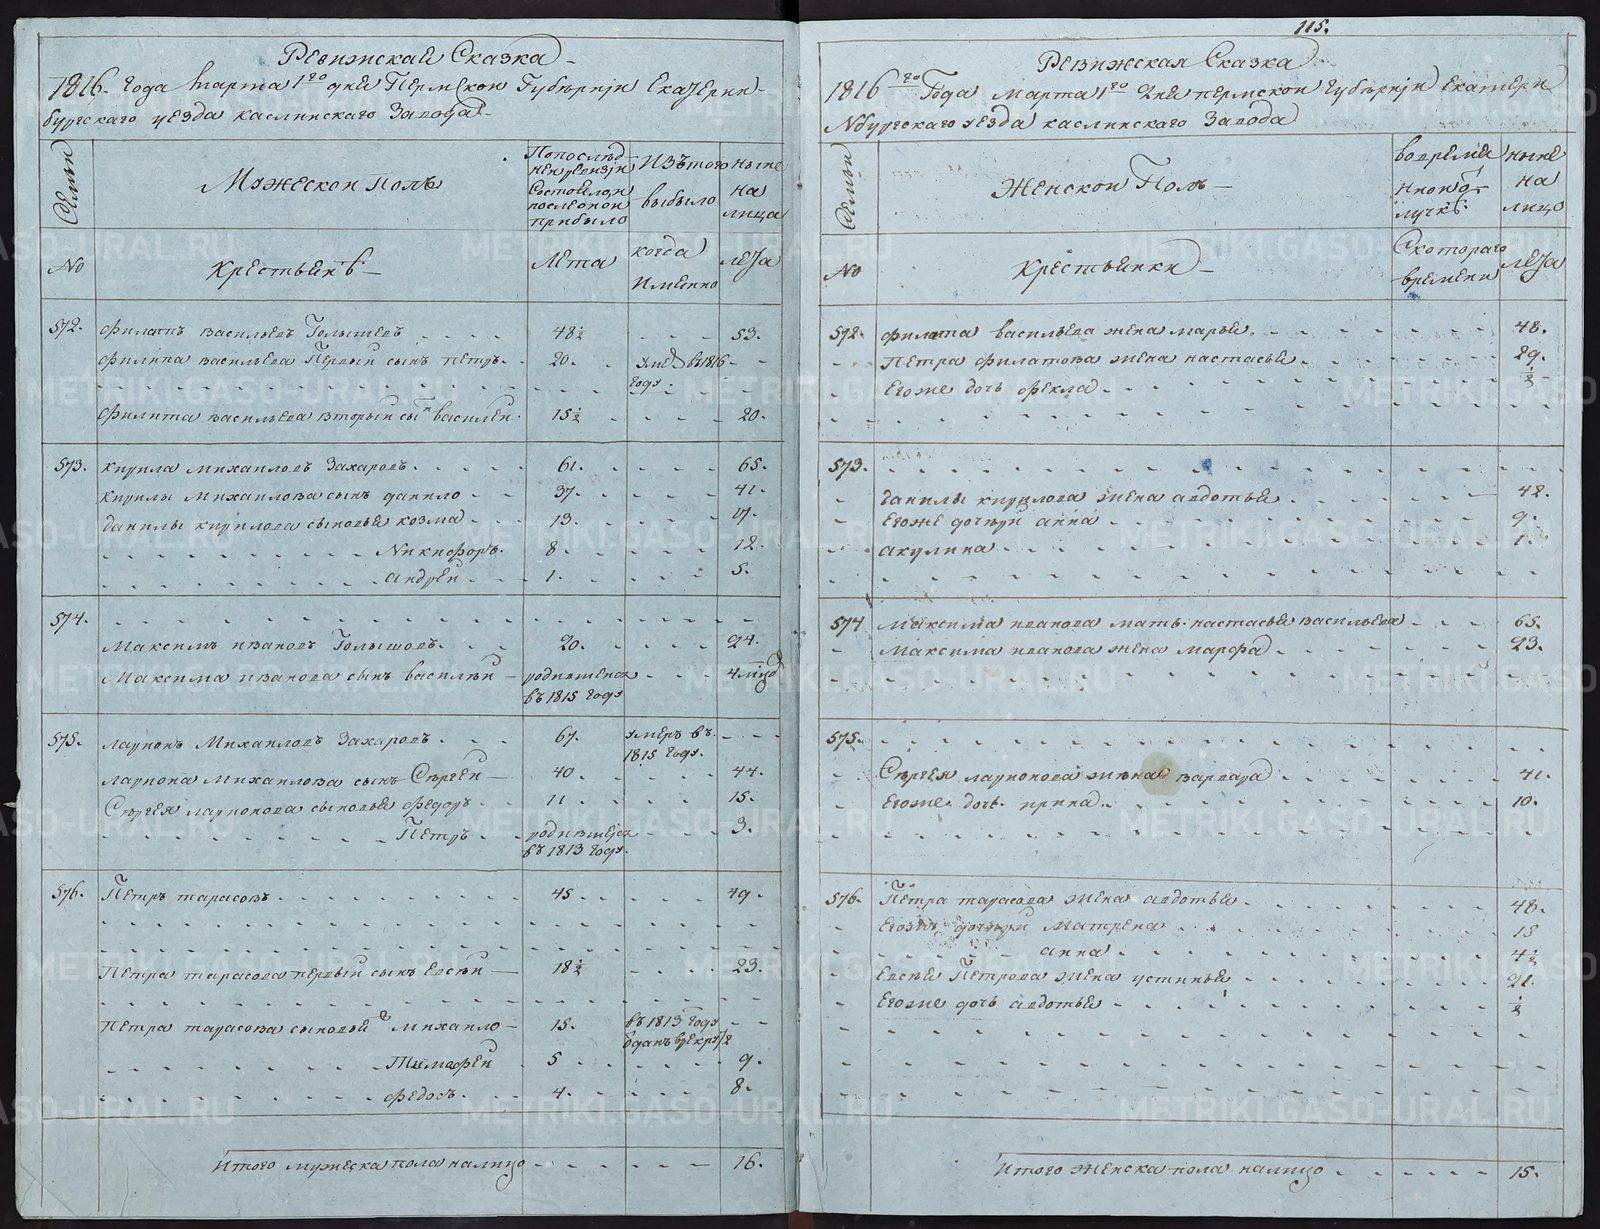 115.
Ревижская Сказка
1816. Года марта 1го дня Пермской Губернїи Екатерин-
бургскаго уезда каслинскаго Завода
Семьи
Мужеской Полъ
Попослед-
ней ревизїи
Состояло и
после оной
прибыло
Изътого
выбыло
ныне
на
лица
No
Крестьянъ
Лета
когда
Именно
Лета
572. филатъ васильевъ Голышевъ 48½ 53.
филипа васильева Первый сынъ петръ 20. умеръ в 1816
году
филипа васильева вторый сынъ василей 15½ 20.
573. кирила михаиловъ Захаровъ 61. 65.
Кирилы Михаилова сынъ данило 37. 41.
данилы кирилова сыновья козма 13. 17.
Никифоръ. 8. 12.
андрей 1. 5.
574.
Максимъ ивановъ Голышовъ 20. 24.
Максима иванова сынъ василей родившейся 4 мцо
въ 1815 году
575. ларионъ Михаиловъ Захаровъ 67. умеръ въ
1815 году.
лариона михаилова сынъ Сергей 40. 44.
Сергея ларионова сыновья федоръ 11. 15.
Петръ родившейся 3.
въ 1813 году.
576. Петръ тарасовъ 45 49.
Петра тарасова первый сынъ Евсей 18½ 23.
Петра тарасова сыновья михаило 15. въ 1813 году
Тимафей 5 9.
федосъ. 4. 8.
Итого мужеска пола налицо 16.
Ревижская Сказка
1816го Года марта 1го дня пермской губернїи Екатери
Nбургскаго уезда каслинскаго Завода
Семьи
Женской Полъ
во время
лучке
ныне
на
лицо
No
Крестьянки
С котораго
времени
лета
572. филата васильева жена марья 48.
Петра филатова жена настасья 29.
Егоже дочь фекла ½
573.
данилы кирилова жена авдотья 42.
Егоже дочери анна 9.
акулина 1.
574 Максима иванова мать настасья васильева 65.
Максима иванова жена марфа 23.
575.
Сергея ларионова жена варвара 41.
Егоже дочь ирина 10.
576. Петра тарасова жена авдотья 48.
Егожъ дочери Матрена 15
анна 4½
Евсея Петрова жена устинья 21.
Егоже дочь авдотья ½
Итого Женска пола налицо 15.
METRIKI.GASO-URAL.RU